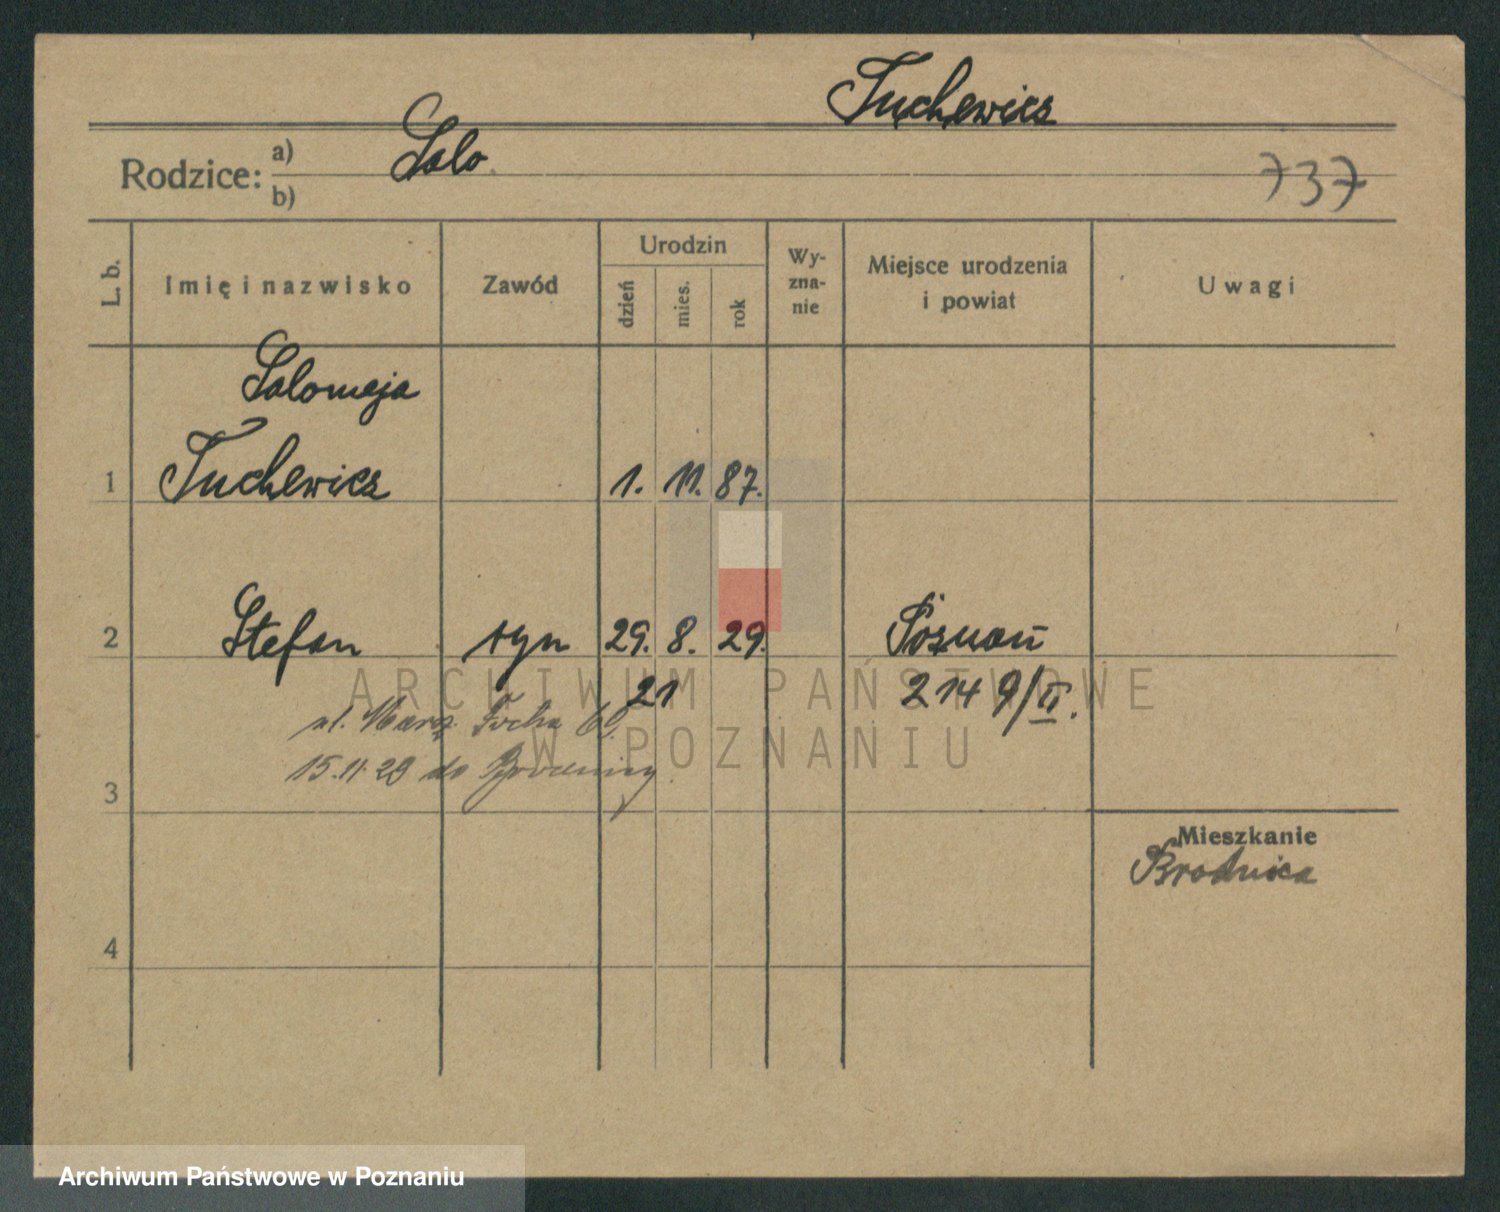 Tuchewicz
Salo
Rodzice: a)
b)
737
L. b.
Imię i nazwisko
Zawód
Urodzin
dzień
mies.
rok
Wy-
zna-
nie
Miejsce urodzenia
i powiat
Uwagi
Salomeja
1 Tuchewicz 1. 11. 87.
2 Stefan syn 29. 8. 29. Poznań
21 2149/II.
ul. Marsz. Focha 60
15.11.29 do Brodnicy
3
Mieszkanie
Brodnica
4
ARCHIWUM PAŃSTWOWE
W POZNANIU
Archiwum Państwowe w Poznaniu